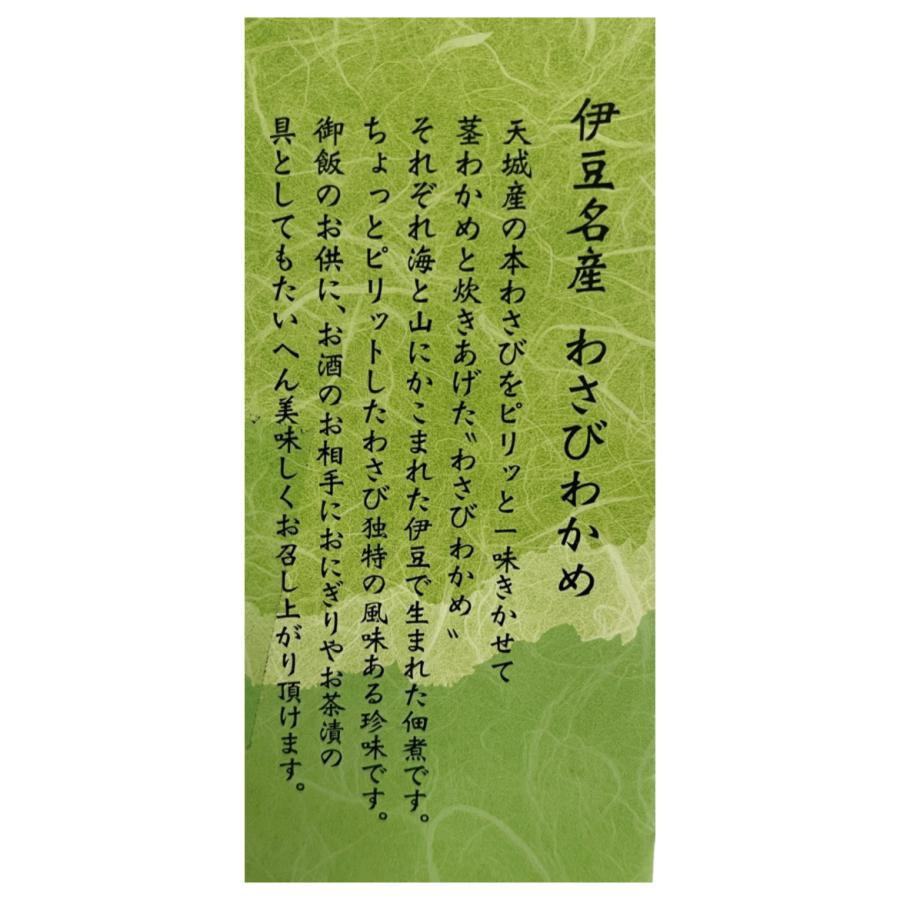 伊豆名産 わさびわかめ
天城産の本わさびをピリッと一味きかせて
茎わかめと炊きあげた〝わさびわかめ〟
それぞれ海と山にかこまれた伊豆で生まれた佃煮です。
ちょっとピリットしたわさび独特の風味ある珍味です。
御飯のお供に、お酒のお相手におにぎりやお茶漬の
具としてもたいへん美味しくお召し上がり頂けます。